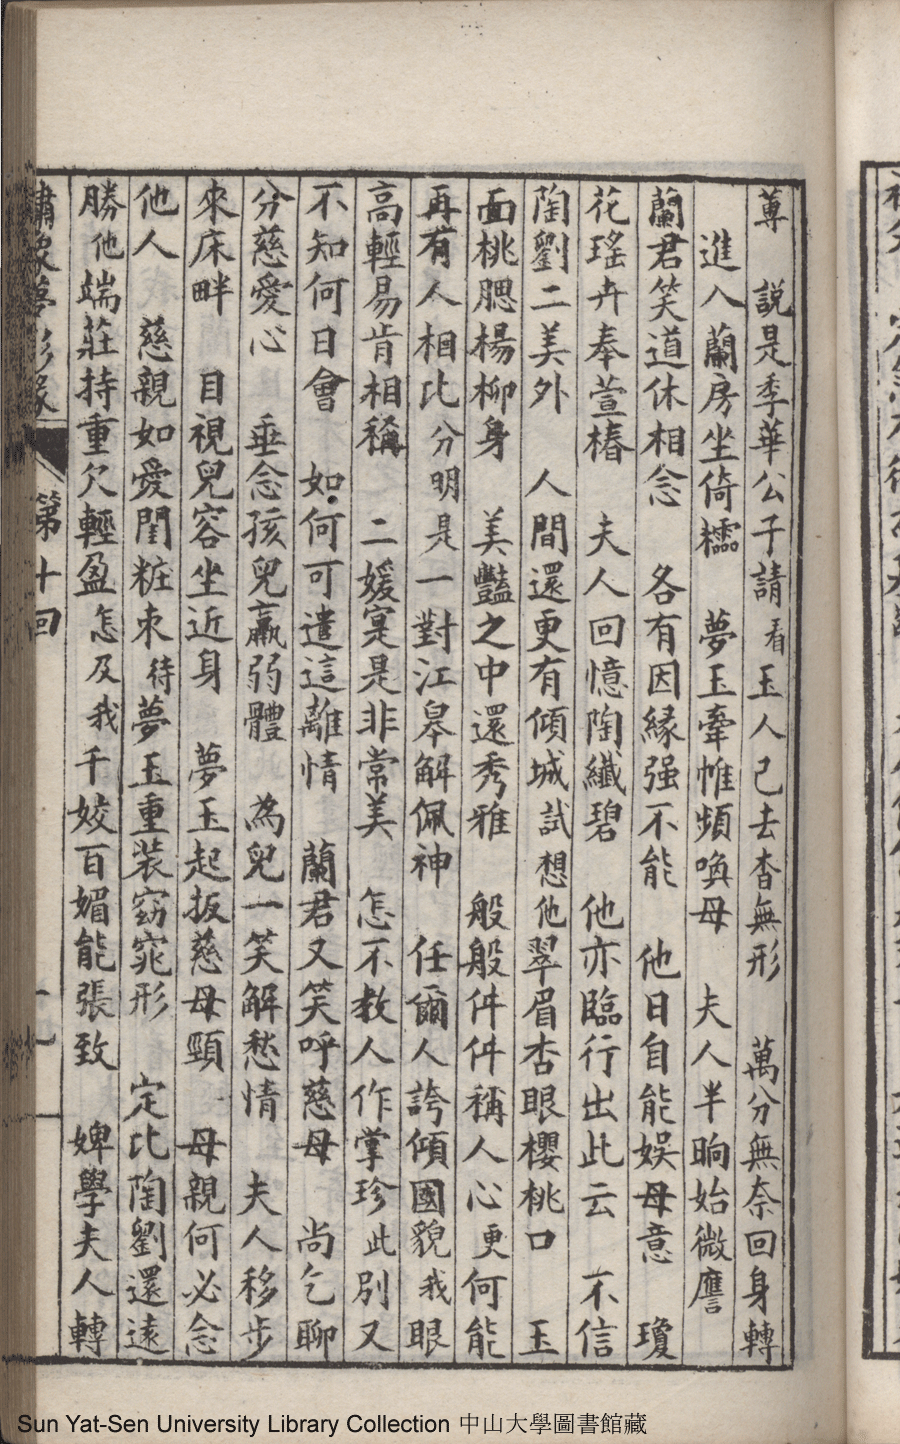 尊　說是季華公子請看玉人已去杳無形　萬分無奈回身轉
進入蘭房坐倚襦　夢玉牽帷頻喚母　夫人半晌始微譍
蘭君笑道休相念　各有因緣强不能　他日自能娛母意　瓊
花瑤卉奉萱椿　夫人回憶陶纖碧　他亦臨行出此云　不信
陶劉二美外　人間還更有傾城試想他翠眉杏眼櫻桃口　玉
面桃腮楊柳身　美豔之中還秀雅　般般件件稱人心更何能
再有人相比分明是一對江皋解佩神　任爾人誇傾國貌我眼
高輕易肯相稱　二媛寔是非常美　怎不教人作掌珍此別又
不知何日會　如何可遣這離情　蘭君又笑呼慈母　尚乞聊
分慈愛心　垂念孩兒羸弱體　為兒一笑解愁情　夫人移步
來床畔　目視兒容坐近身　夢玉起扳慈母頸　母親何必念
他人　慈親如愛閨粧束待夢玉重装窈窕形　定比陶劉還遠
勝他端莊持重欠輕盈怎及我千姣百媚能張致　婢學夫人轉
繡像夢影緣　第十回
Sun Yat-Sen University Library Collection 中山大學圖書館藏